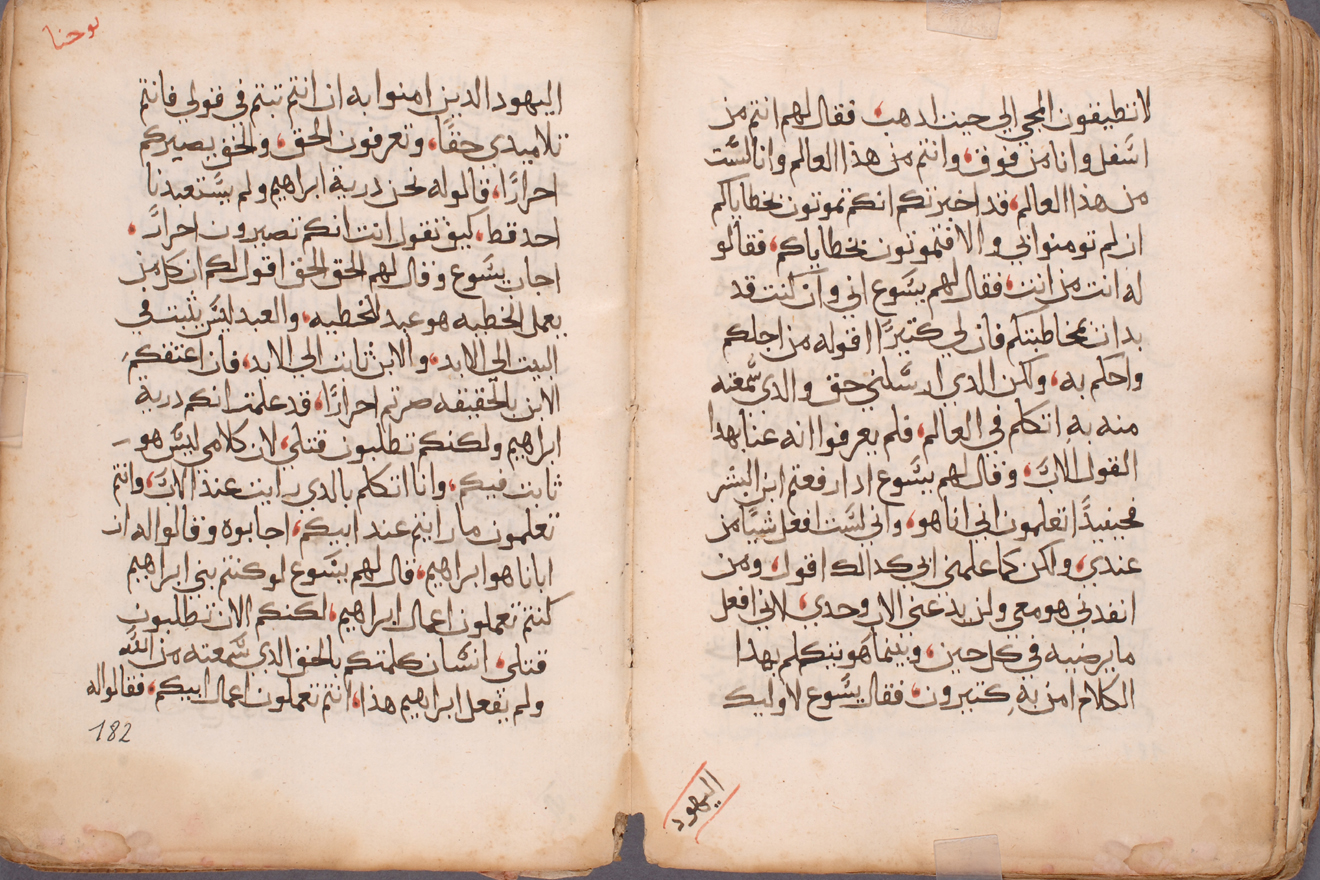 لا تطيقون المجي الي حيث ادهب، فقال لهم انتم من
اسفل وانا من فوق، وانتم من هذا العالم وانا لست
من هذا العالم، قد اخبرتكم انكم تموتون بخطاياكم
ان لم تومنوا بي والا فتموتون بخطاياكم، فقالو
له انت من انت، فقال لهم يسوع اني وان كنت قد
بدات بمخاطبتكم فان لي كثيرًا اقوله من اجلكم
واحكم به، ولكن الدي ارسلني حق والدي سمعته
منه به اتكلم في العالم، فلم يعرفوا انه عنا بهدا
القول الاب، وقال لهم يسوع ادا رفعتم ابن البشر
فحينيدًا تعلمون اني انا هو، واني لست افعل شيًا من
عندي، ولكن كما علمني ابي كدالك اقول، ومن
انفدني هو معي ولن يدعني الاب وحدي، لاني افعل
ما يرضيه في كل حين، وبينما هو يتكلم بهدا
الكلام امن به كتيرون، فقال يسوع لاوليك
اليهود
يوحنا
اليهود الدين امنوا به ان انتم تبتم في قولي فانتم
تلاميدي حقًا، وتعرفون الحق، والحق يصيركم
احرارًا، قالو له نحن درية ابراهيم ولم يستعبدنا
احد قط، كيف تقول انت انكم تصيرون احرارً،
اجاب يسوع وقال لهم الحق الحق اقول لكم ان كل من
يعمل الخطيه هو عبد للخطيه، والعبد ليس يثبت في
البيت الي الابد، والابن ثابت الي الابد، فان اعتقكم
الابن بالحقيقه صرتم احرارًا، قد علمت انكم درية
ابراهيم ولكنكم تطلبون قتلي، لان كلامي ليس هو
ثابت فيكم، وانا اتكلم بالدي رايت عند الاب، وانتم
تعلمون ما رايتم عند ابيكم، اجابوه وقالوا له ان
ابانا هو ابراهيم، قال لهم يسوع لو كنتم بني ابراهيم
كنتم تعملون اعمال ابراهيم، لكنكم الان تطلبون
قتلي، انسان كلمتكم بالحق الدي سمعته من الله
ولم يفعل ابراهيم هذا، انتم تعملون اعمال ابيكم، فقالوا له
182